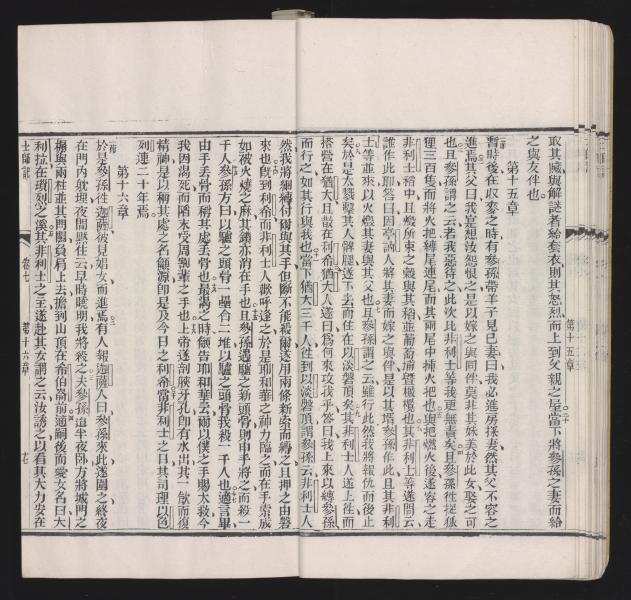 取其贓與解謎者給套衣則其怒烈而上到父親之屋當下將參孫之妻而給
之與友伴也
第十五章
暫時後在收麥之時有參孫帶羊子見己妻曰我必進房探妻然其父不容之
進焉其父曰我當是想汝怨恨之是以嫁之與同伴莫非其妹美於此女娶之可
也且參孫謂之云者我惡待之此次比非利士等我更無責矣且參孫往捉狐
狸三百隻而將火把縛尾連尾而其兩尾中揷火把也與把燃火後遂容之走
非利士稻中且燬所束之穀與其稻並葡萄埔曁橄欖也其非利士等遂問云
誰作此耶答曰因亭訥人將其妻而嫁之與伴是以其壻參孫作此且其非利
士等並來以火燬其妻與其父也且參孫謂之云雖行此然我將報仇而後止
矣於是大戮擊其人髀腿遂下去而住在以淡磐頂矣其非利士人遂上往而
搭營在猶大且散在利希猶大人遂曰爲何來攻我乎答曰我上來以縛參孫
而行之如其行與我也當下猶大三千人往到以淡磐頂謂參孫云非利士人
然我將綑縛付爾與其手但斷不能殺爾遂用兩條新索而縛之且押之由磐
來也旣到利希而非利士人歡呼逢之於是耶和華之神力臨之而在手索成
如被火燒之麻其鎖亦消在手也且參孫遇驢之新頭骨則由手將之而殺一
千人參孫方曰以驢之頭骨一壘合二堆以驢之頭骨我殺一千人也適言畢
由手丟骨而稱其處丟骨也最渴之時顧告耶和華云爾以僕之手賜大救今
我因渴死而陷未受周割輩之手也上帝遂剖腮牙孔卽有水出其一飲而復
精神是以稱其處之名籲源卽是及今日之利希當非利士之日其司理以色
列連二十年焉
第十六章
於是參孫往迦薩彼見娼女而進焉有人報迦薩人曰參孫來此遂圍之終夜
在門內躭埋夜間緘住云早時曉明我將殺之夫參孫這半夜臥方將城門之
扇與兩柱並其門關負肩上去擔到山頂在希伯崙前適嗣後而愛女名曰大
利拉在瑣烈之溪其非利士之主遂赴其女謂之云汝誘之以看其大力安在
士師記
卷七
第十六章
十七
第十五章